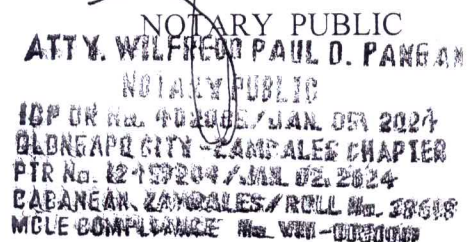 NOTARY PUBLIC
ATTY. WILFREDO PAUL D. PANGAN
NOTARY PUBLIC
IBP OR No. / JAN. 2024
OLONGAPO CITY - ZAMBALES CHAPTER
PTR No. / JAN. 02, 2024
CABANGAN, ZAMBALES/ROLL No. 38618
MCLE COMPLIANCE No. VIII-